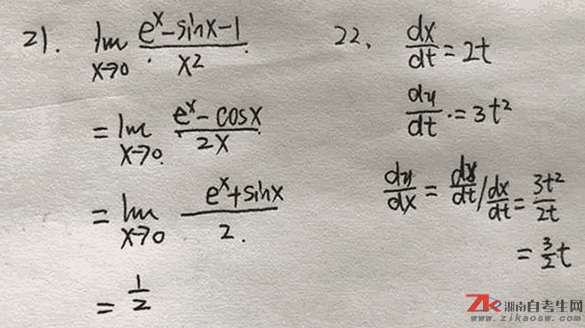 21. lim x→0 (e^x - sinx - 1)/x^2
= lim x→0 (e^x - cosx)/2x
= lim x→0 (e^x + sinx)/2.
= 1/2
22、 dx/dt = 2t
dy/dt = 3t^2
dy/dx = dy/dt / dx/dt = 3t^2/2t
= 3/2 t
ZK 湖南自考生网
www.zikaosw.com